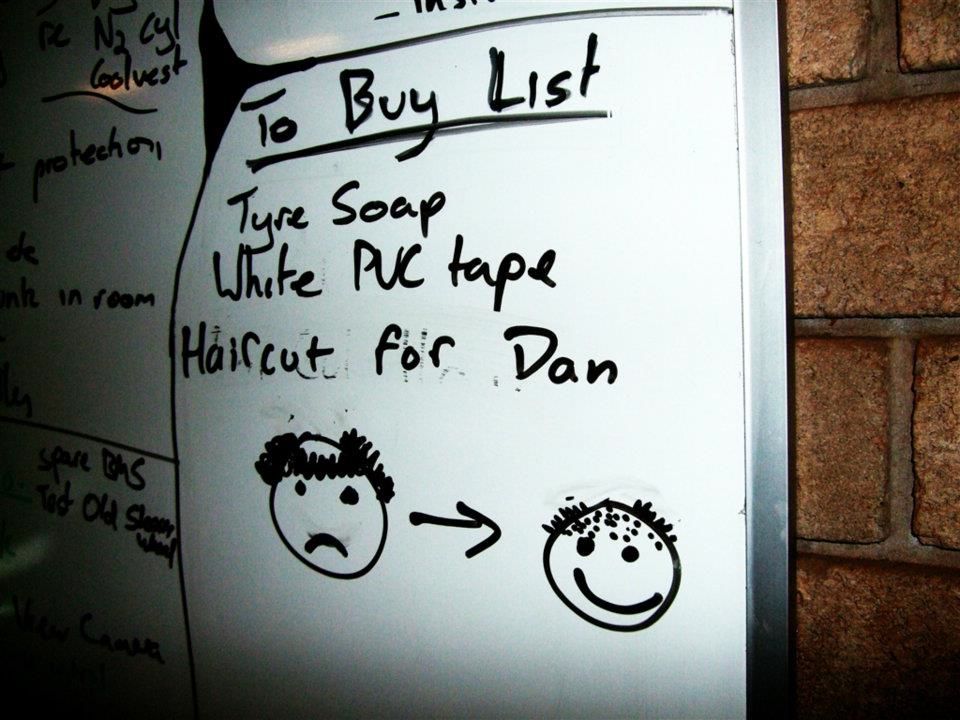 N2 Cyl
Coolvest
protection,
in room
spare BMS
Test Old
View Camera
To Buy List
Tyre Soap
White PVC tape
Haircut for Dan